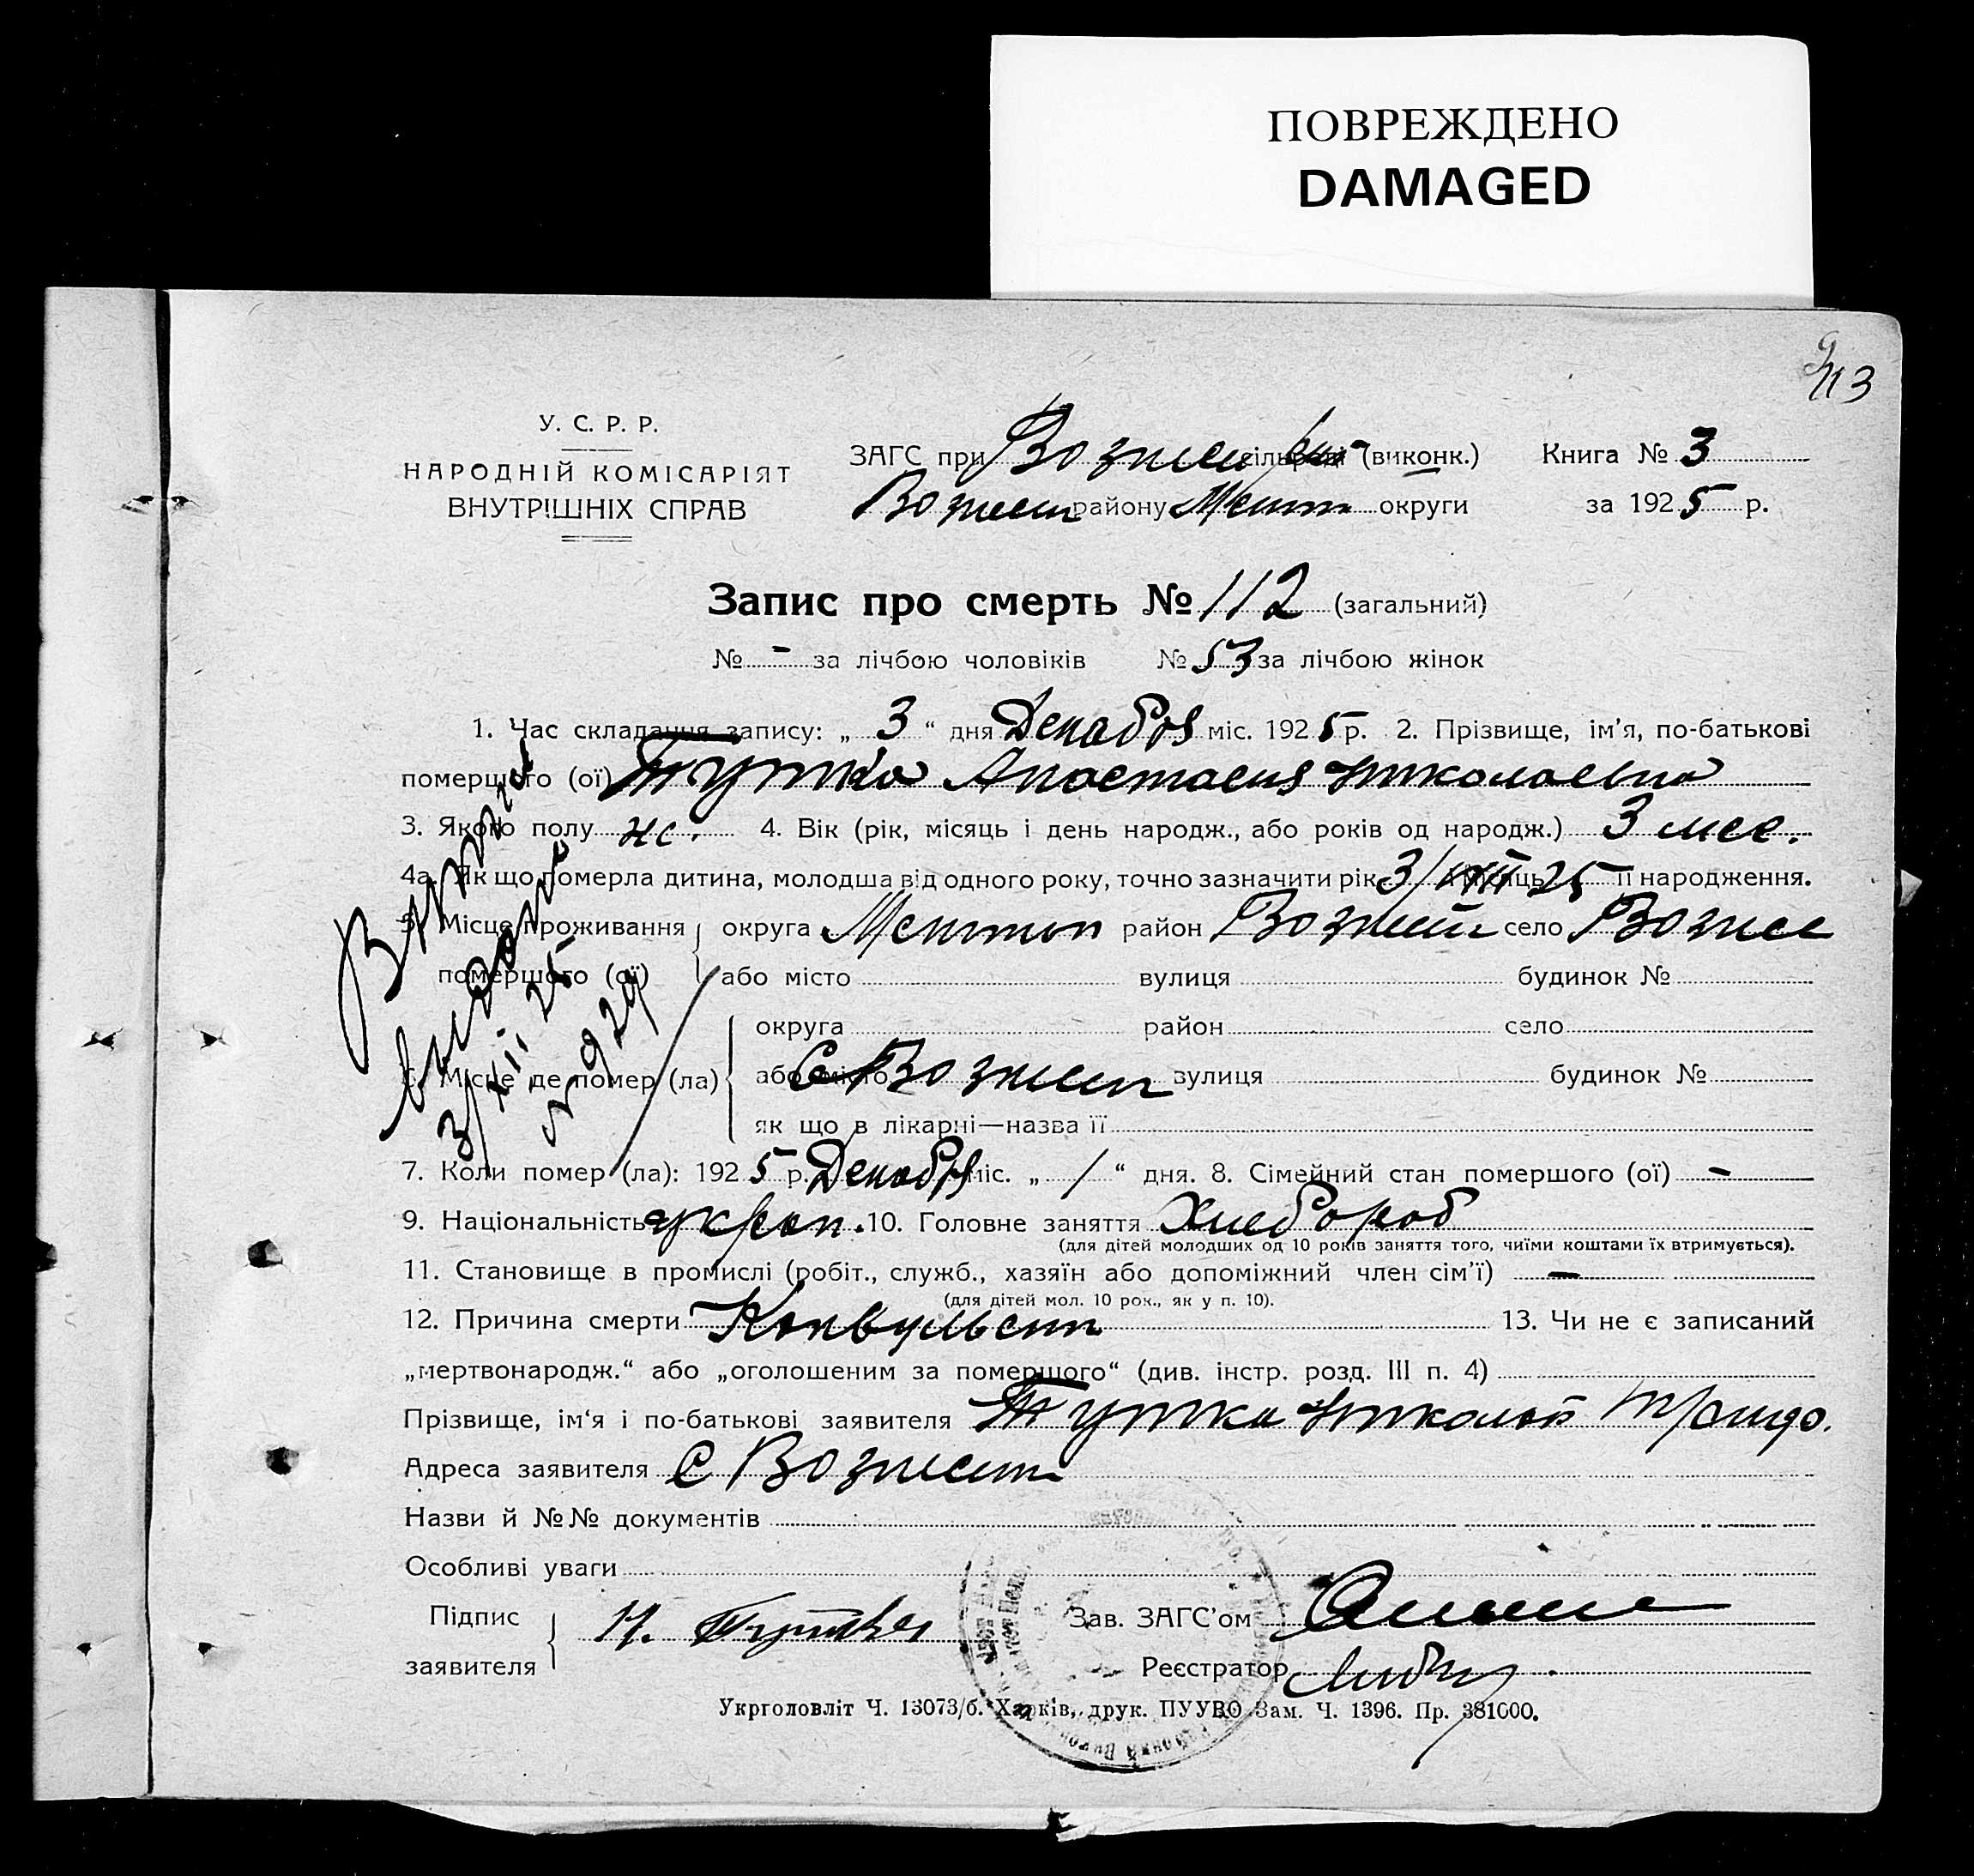 ПОВРЕЖДЕНО
DAMAGED
113
У. С. Р. Р.
НАРОДНІЙ КОМІСАРІЯТ
ВНУТРІШНІХ СПРАВ
ЗАГС при Вознесен (виконк.) Книга № 3
Вознесен району Меліт округи за 1925 р.
Запис про смерть № 112 (загальний)
№ - за лічбою чоловіків № 53 за лічбою жінок
1. Час складання запису: „ 3 “ дня Декабря міс. 1925 р. 2. Прізвище, ім'я, по-батькові
помершого (ої) Тутка Анастасия Николаевна
3. Якого полу ж. 4. Вік (рік, місяць і день народж., або років од народж.) 3 мес.
4а. Як що померла дитина, молодша від одного року, точно зазначити рік 3/ 25 її народження.
5. Місце проживання помершого (ої) округа Мелитоп район Вознесен село Вознес
або місто вулиця будинок №
6. Місце де помер (ла) округа район село
або місто С Вознесен вулиця будинок №
як що в лікарні—назва її
7. Коли помер (ла): 1925 р. Декабря міс. „ 1 “ дня. 8. Сімейний стан помершого (ої) -
9. Національність украин. 10. Головне заняття Хлебороб
(для дітей молодших од 10 років заняття того, чиїми коштами їх втримується).
11. Становище в промислі (робіт., служб., хазяїн або допоміжний член сім'ї) —
(для дітей мол. 10 рок., як у п. 10).
12. Причина смерти Конвульсии 13. Чи не є записаний
„мертвонародж.“ або „оголошеним за помершого“ (див. інстр. розд. III п. 4)
Прізвище, ім'я і по-батькові заявителя Тутка Николай
Адреса заявителя С Вознесен
Назви й №№ документів
Особливі уваги
Підпис заявителя Н. Тутка Зав. ЗАГС'ом
Реєстратор
Укрголовліт Ч. 13073/б. Харків, друк. ПУУВО Зам. Ч. 1396. Пр. 381000.
Выписка
выдана
3/XII 25
N 929